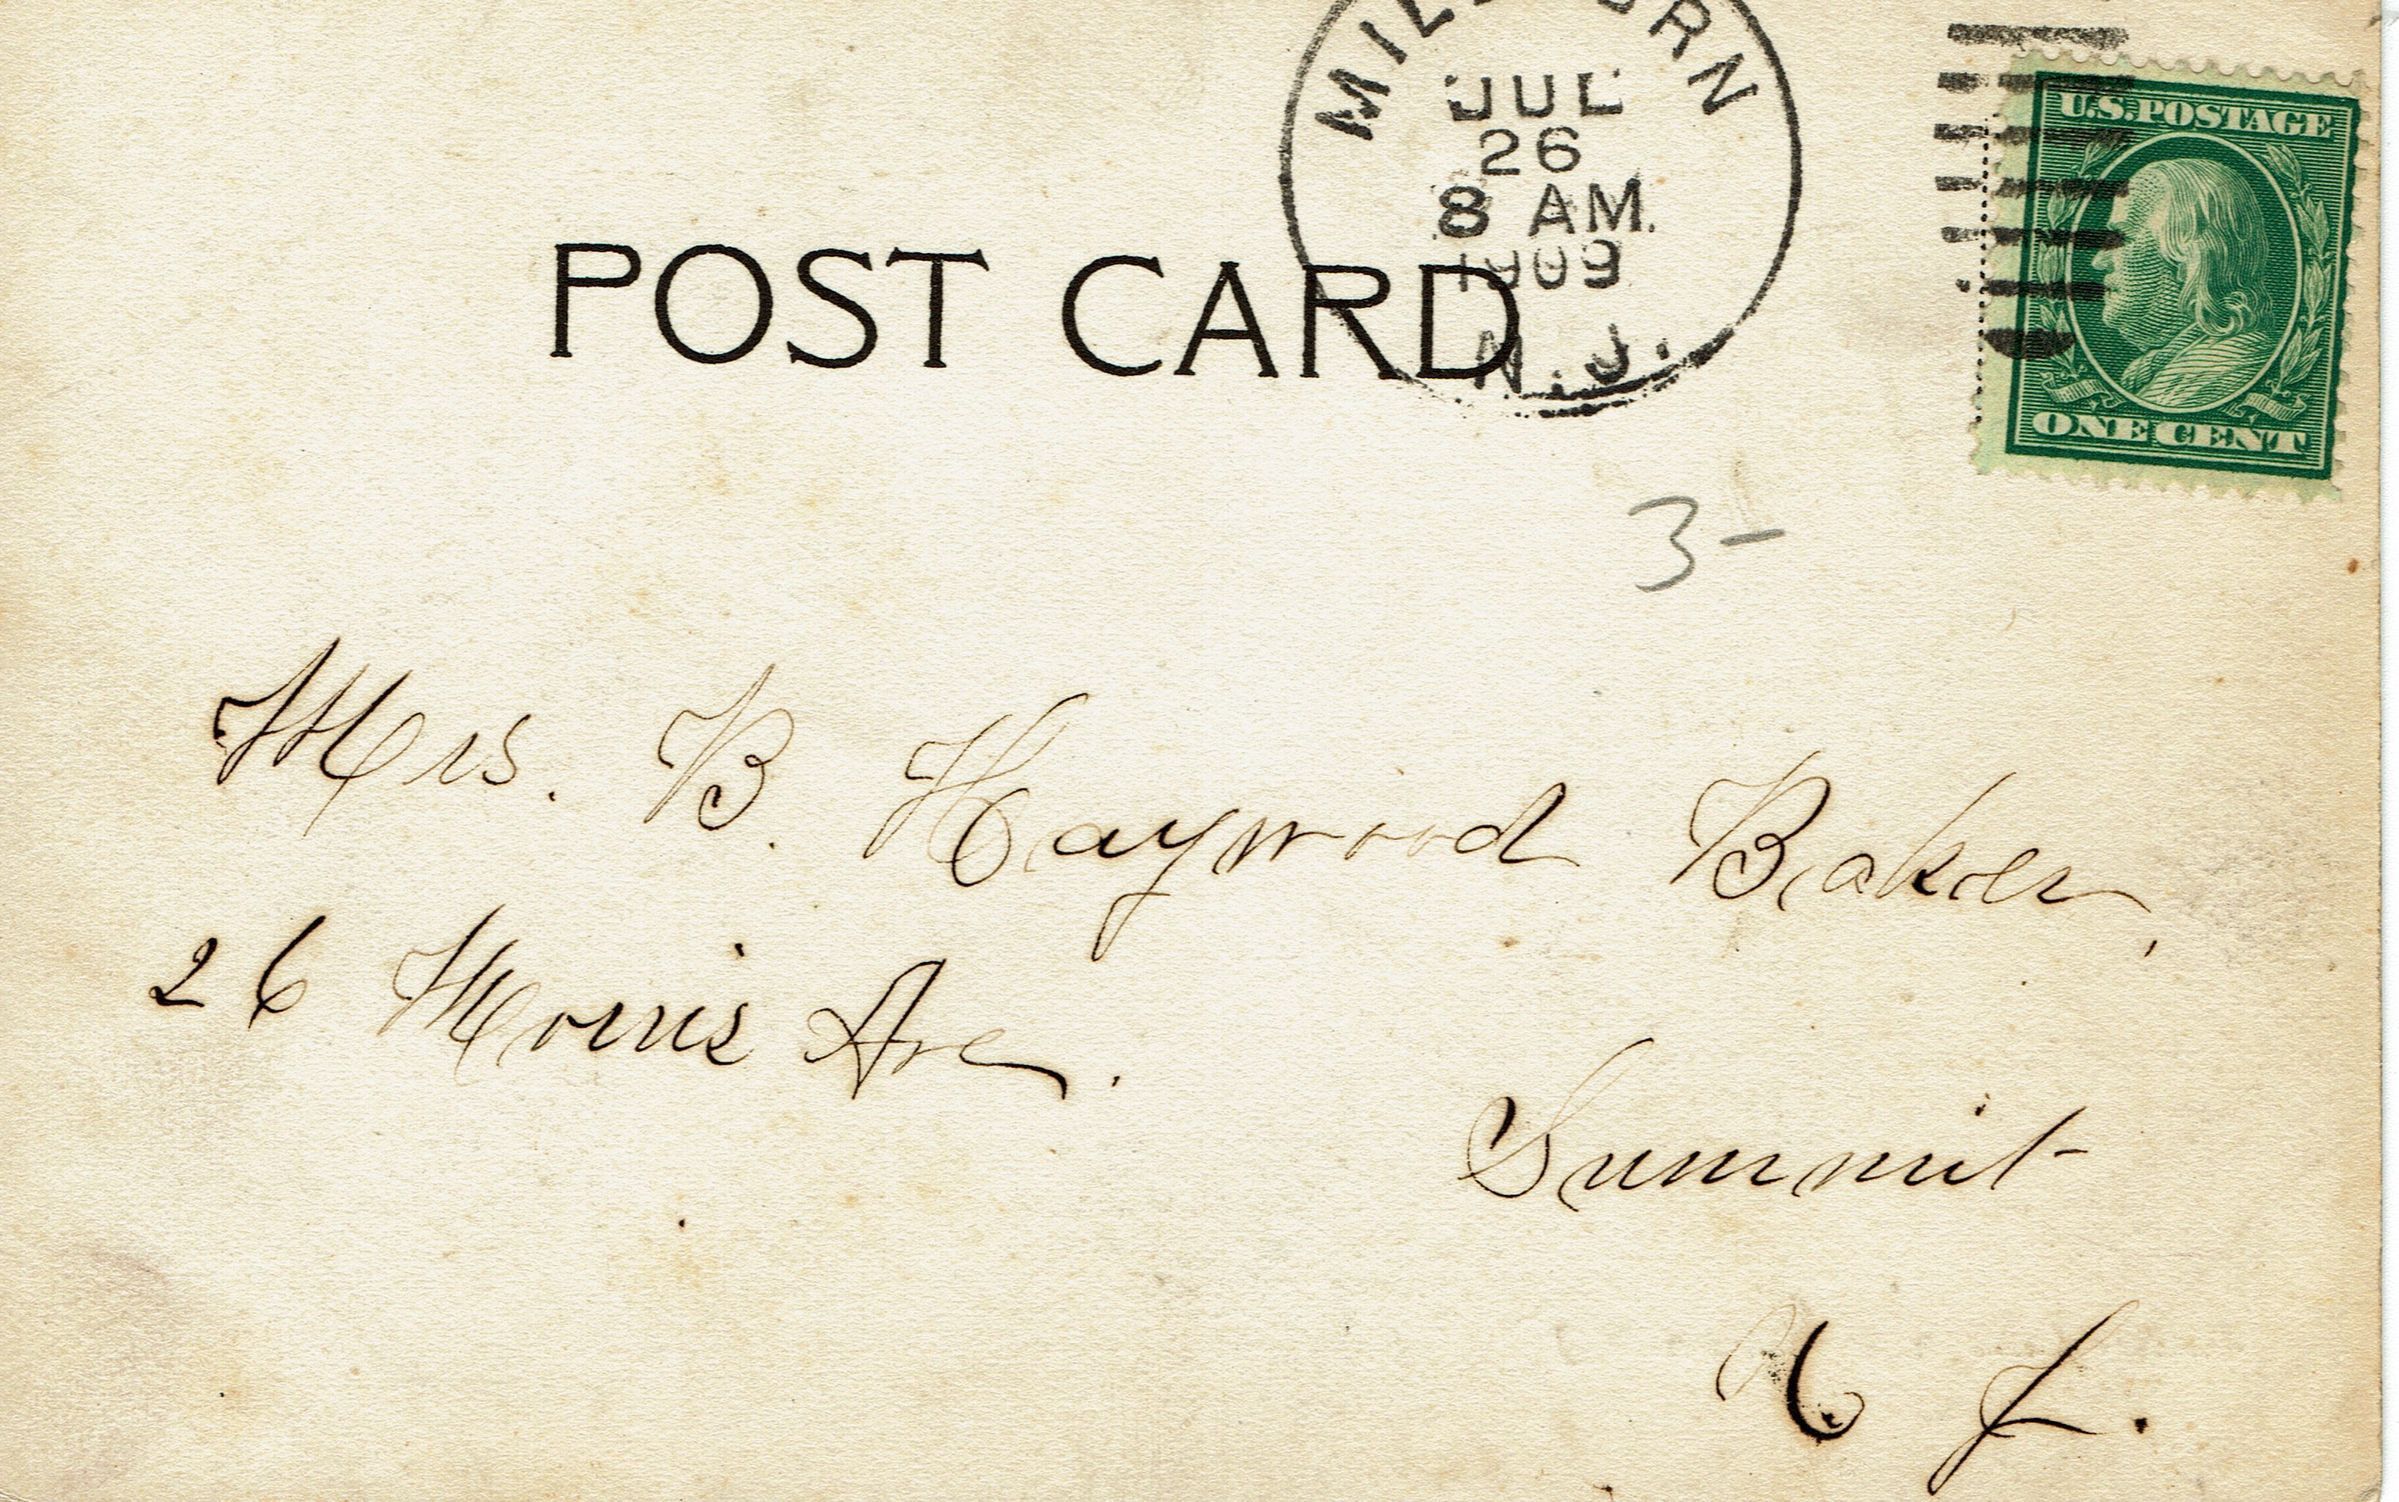 MILLBURN
JUL
26
8 AM.
1909
N.J.
U.S. POSTAGE
ONE CENT
POST CARD
3-
Mrs. B. Haywood Baker,
26 Morris Ave.
Summit
N J.